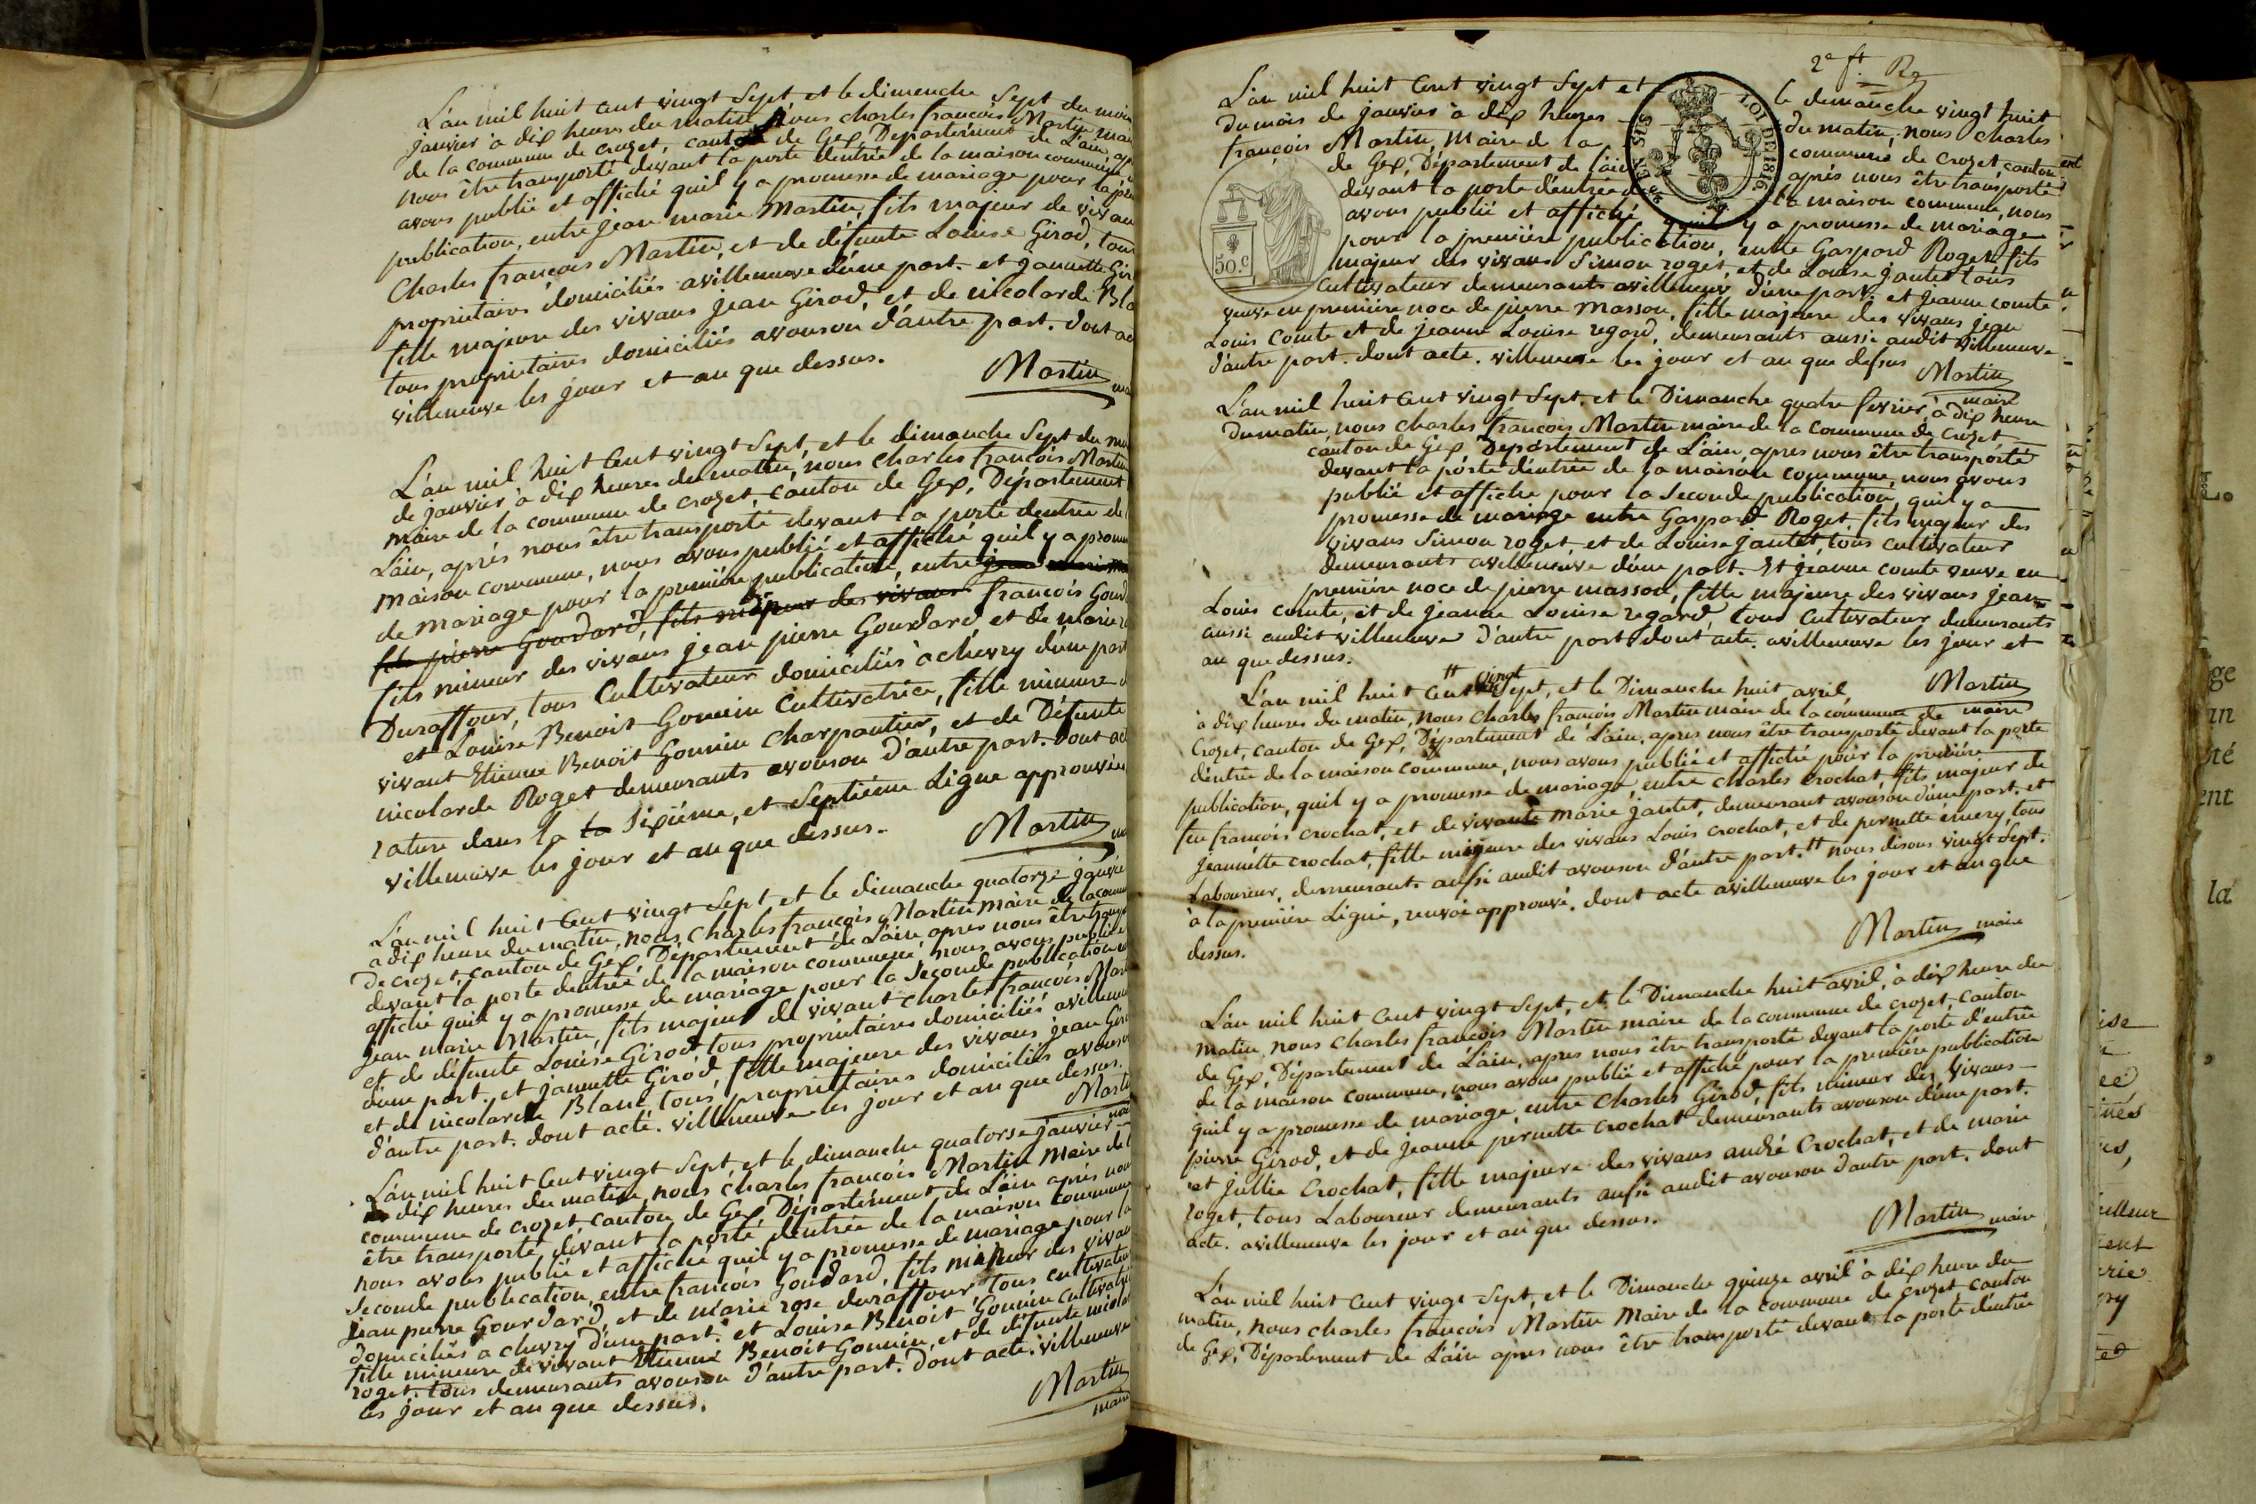 L'an mil huit Cent vingt Sept et le dimanche Sept du mois
janvier à dix heures du matin, Nous charles françois Martin mai
de la commune de crozet, canton de Gex, Département de L'ain, ap
nous être transporté devant la porte dentrée de la maison commune,
avons publié et affiché quil y a promesse de mariage pour la pre
publication, entre jean marie Martin, fils majeur de vivan
Charles françois Martin, et de défunte Louise Girod, tous
propriétaires domiciliés avilleneuve d'une part. et jannette Gir
fille majeure des vivans jean Girod, et de nicolarde Bla
tous propriétaires domiciliés avouson d'autre part. dont ac
villeneuve les jour et an que dessus.
Martin
L'an mil huit Cent vingt Sept, et le dimanche Sept du m
de janvier à dix heures du matin, nous charles françois Martin
maire de la commune de crozet, canton de Gex, Département
L'ain, après nous être transporté devant la porte dentrée de
maison commune, nous avons publié et affiché quil y a prome
de mariage pour la première publication, entre jean marie
fils pierre Gourdard, fils majeur des vivans françois Gourd
fils mineur des vivans jean pierre Gourdard et de Marie r
Duraffour, tous Cultivateur domiciliés à chevry d'une part
et Louise Benoit Gonnin Cultivatrice, fille mineure d
vivant Etienne Benoit Gonnin Charpantier, et de Défunte
nicolarde Roget demeurants avouson d'autre part. Dont ac
rature dans la la Sixiéme, et Septiéme Ligne approuvée
villeneuve les jour et an que dessus.
Martin
L'an mil huit Cent vingt Sept et le dimanche quatorze janvie
à dix heure du matin, nous charles françois Martin maire de la comm
De crozet, canton de Gex, Département de L'ain, après nous être transp
devant la porte dentrée de la maison commune, nous avons publié e
affiché quil y a promesse de mariage pour la Seconde publication e
jean marie Martin, fils majeur de vivant charles françois Mart
et de défunte Louise Girod tous propriétaires domiciliés avilleneuv
d'une part. et jannette Girod, fille majeure des vivans jean Giro
et de nicolarde Blanc tous propriétaires domiciliés avouson
d'autre part. dont acte. villeneuve les jour et an que dessus.
Marti
L'an mil huit Cent vingt Sept, et le dimanche quatorse janvier
à dix heures du matin, nous charles françois Martin Maire de l
commune de crozet, canton de Gex, Département de L'ain après nou
être transporté, devant la porte dentrée de la maison commune
nous avons publié et affiché quil y a promesse de mariage pour la
Seconde publication, entre françois Gourdard, fils mineur des vivan
jean pierre Gourdard, et de marie rose duraffour, tous cultivateu
domiciliés à chevry d'une part. et Louise Benoit Gonnin cultivatr
fille mineure de vivant Etienne Benoit Gonnin, et de défunte nicola
roget. tous demeurants avouson d'autre part. Dont acte. villeneuve
les jour et an que dessus.
Martin
maire
2e ft. Rg
L'an mil huit Cent vingt Sept et le demanche vingt huit
du mois de janvier à dix heures du matin, nous charles
françois Martin, Maire de la commune de crozet, canton
de Gex, Département de L'ain après nous être transporté
devant la porte dentrée de la maison commune, nous
avons publié et affiché quil y a promesse de mariage
pour la première publication, entre Gaspard Roget fils
majeur des vivans Simon roget, et de Louise jantet tous
Cultivateur demeurants avilleneuve d'une part. et jeanne comte
veuve en première noce de pierre masson, fille majeure des vivans jean
Louis comte et de jeanne Louise regard, demeurants aussi audit villeneuve
d'autre part. dont acte. villeneuve les jour et an que dessus
Martin
maire
LOI DE 1816
50.c
L'an mil huit Cent vingt Sept, et le Dimanche quatre fevrier, à dix heure
du matin, nous charles françois Martin maire de la commune de crozet
canton de Gex, Département de L'ain, après nous être transporté
devant la porte d'entrée de la maison commune, nous avons
publié et affiché pour la Seconde publication, quil y a
promesse de mariage entre Gaspard Roget fils majeur des
vivans Simon roget, et de Louise jantet, tous cultivateur
demeurants avilleneuve d'une part. Et jeanne comte veuve en
première noce de pierre masson, fille majeure des vivans jean
Louis comte, et de jeanne Louise regard, tous Cultivateur demeurants
aussi audit villeneuve d'autre part. dont acte. avilleneuve les jour et
an que dessus.
Martin
maire
L'an mil huit Cent tt vingt Sept, et le Dimanche huit avril,
à dix heures du matin, nous charles françois Martin maire de la commune de
Crozet, canton de Gex, Département de L'ain, après nous être transporté devant la porte
d'entrée de la maison commune, nous avons publié et affiché pour la première
publication, quil y a promesse de mariage, entre charles crochat, fils majeur de
feu françois crochat, et de vivante marie jantet, demeurant avouson d'une part. et
jeannette crochat, fille majeure des vivans Louis crochat, et de pernette émery, tous
Laboureur, demeurant. aussi audit avouson d'autre part. tt nous disons vingt Sept.
à la première Ligne, renvoi approuvé. dont acte avilleneuve les jour et an que
dessus.
Martin maire
L'an mil huit Cent vingt Sept, et le Dimanche huit avril, à dix heure du
matin, nous charles françois Martin maire de la commune de crozet, canton
de Gex, Département de L'ain, après nous être transporté devant la porte d'entrée
de la maison commune, nous avons publié et affiché pour la première publication
quil y a promesse de mariage, entre charles Girod, fils mineur des vivans
pierre Girod, et de jeanne pernette crochat demeurants avouson d'une part.
et jullie Crochat, fille majeure des vivans andré Crochat, et de marie
roget, tous Laboureur demeurants aussi audit avouson d'autre part. dont
acte. avilleneuve les jour et an que dessus.
Martin maire
L'an mil huit Cent vingt Sept, et le Dimanche quinze avril à dix heure du
matin, nous charles françois Martin Maire de la commune de crozet, canton
de Gex, Département de L'ain après nous être transporté devant la porte d'entrée